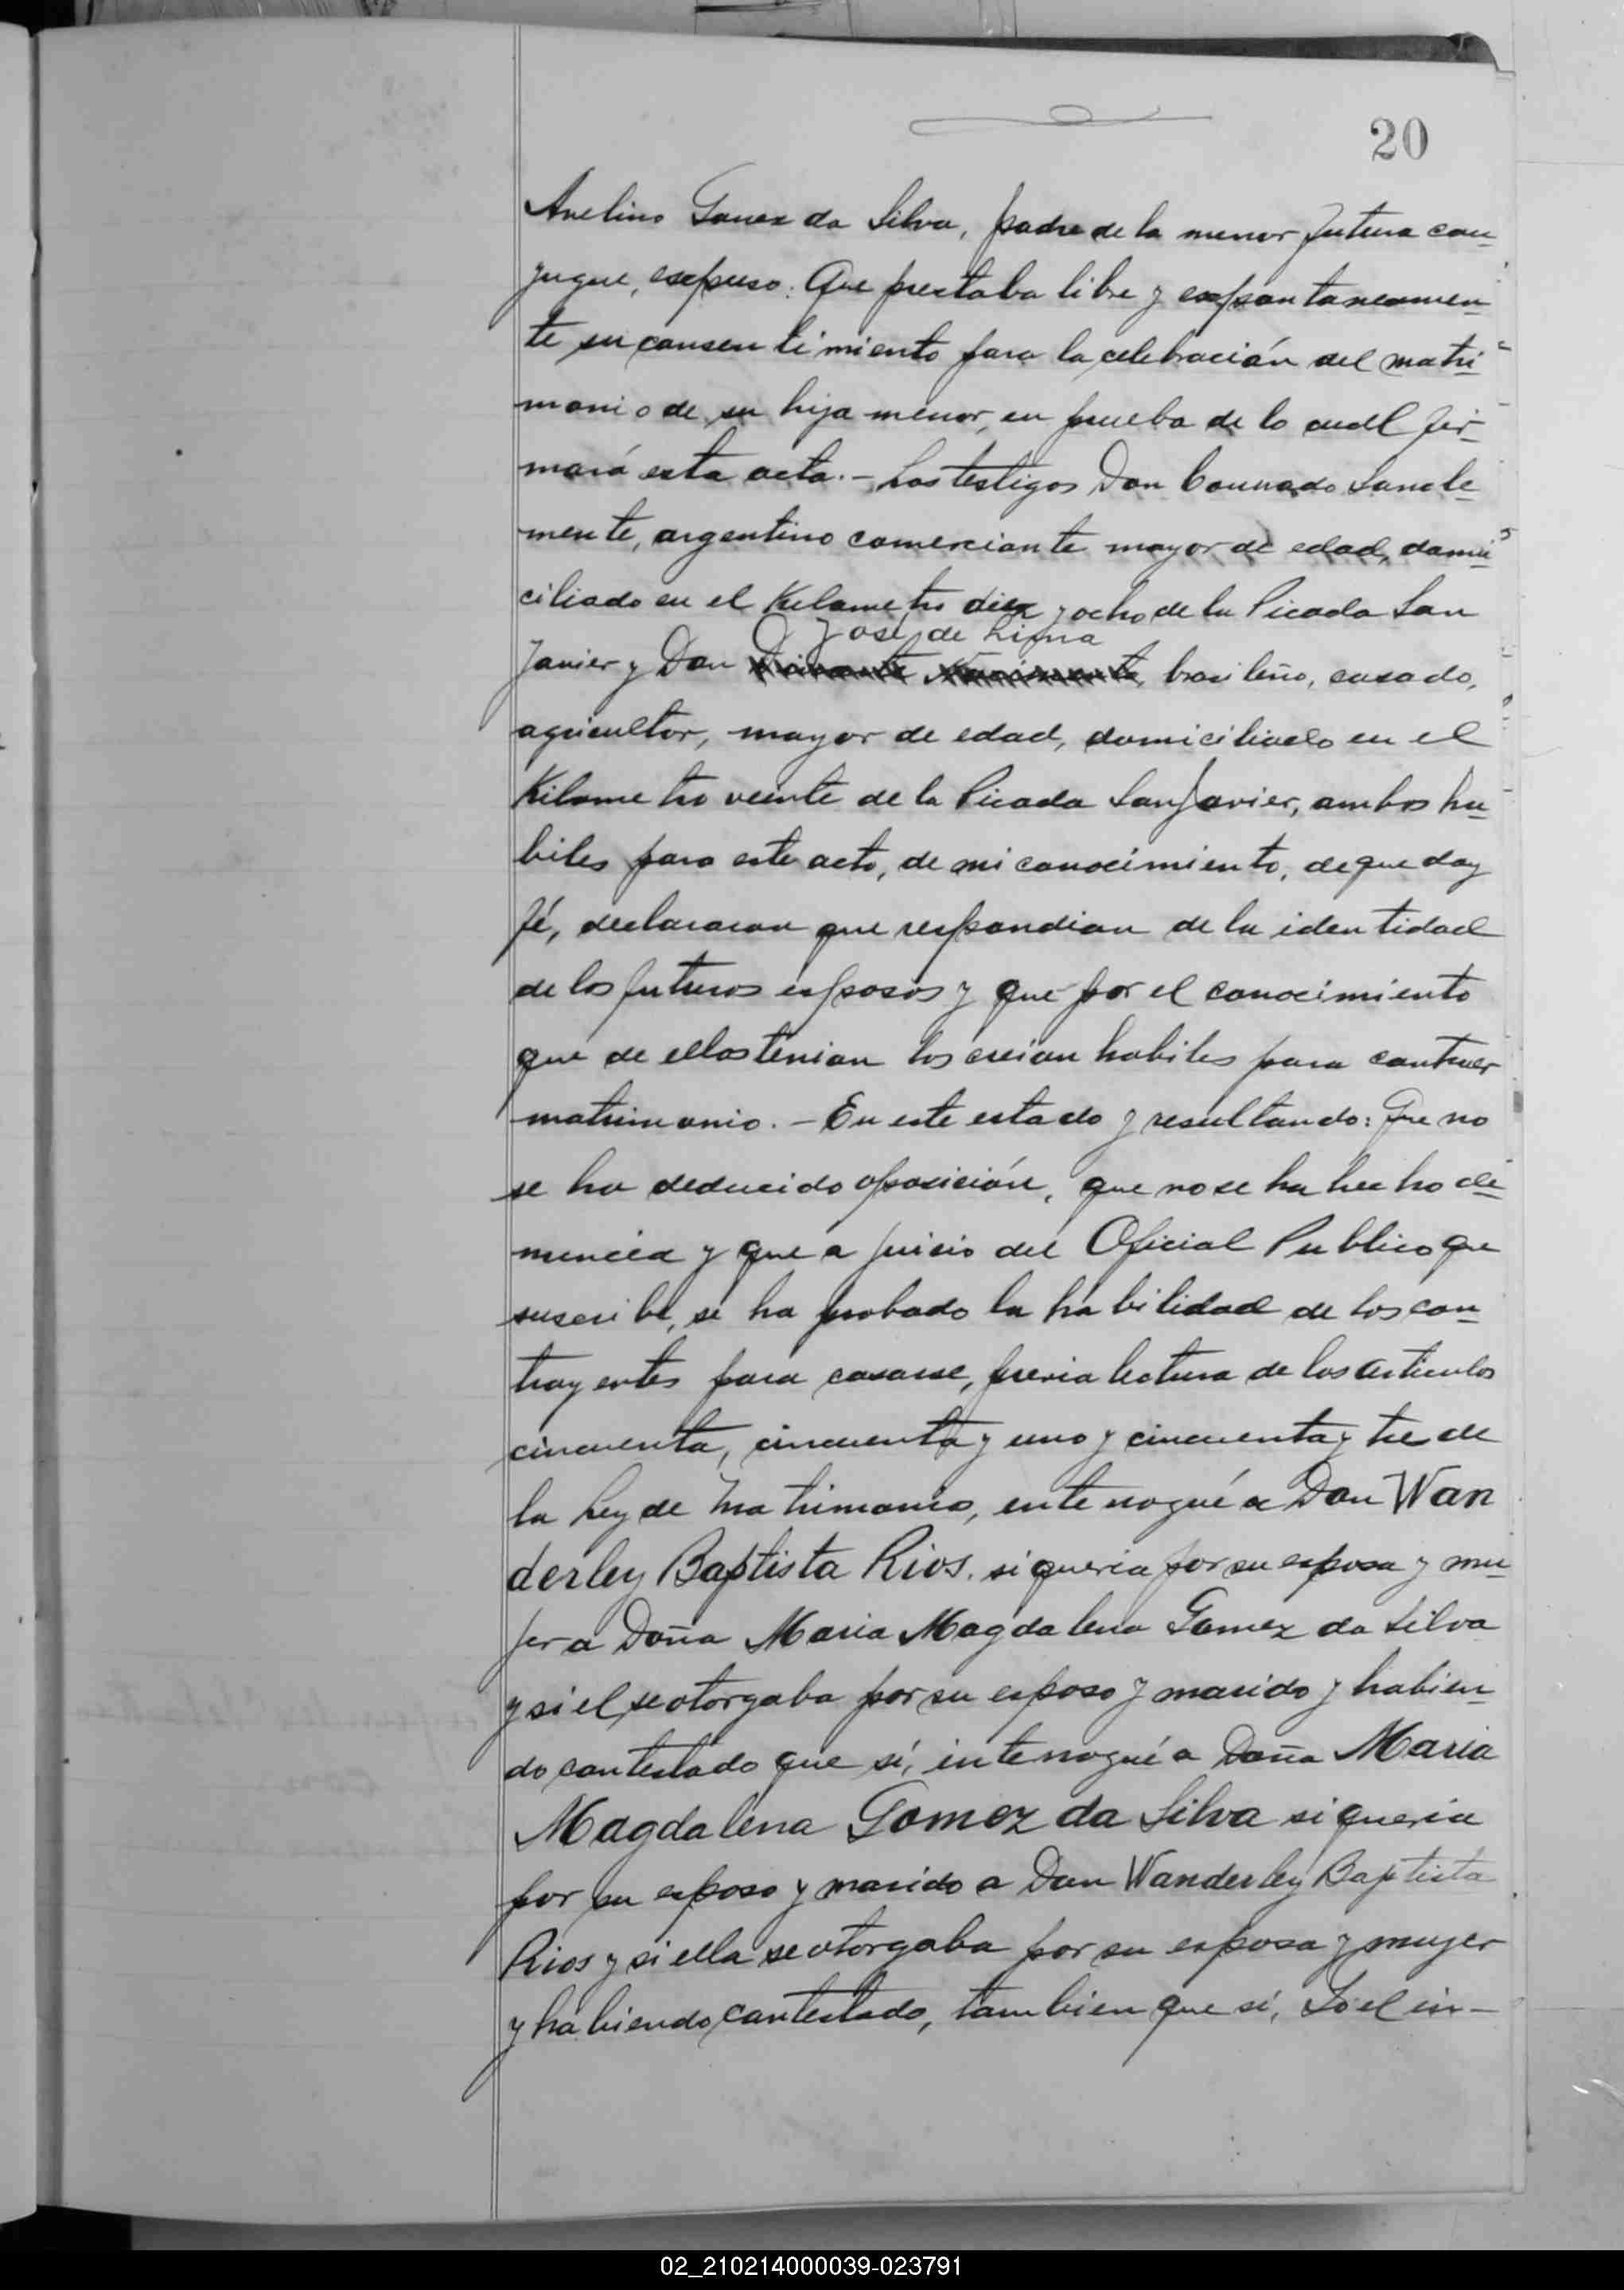 20
Avelino Gomez da Silva, padre de la menor futura con-
yugue, expuso: Que prestaba libre y expontaneamen-
te su consentimiento para la celebración del matri-
monio de su hija menor, en prueba de lo cual fir-
mará esta acta.- Los testigos Don Conrado Sancle-
mente, argentino comerciante mayor de edad, domi-
ciliado en el Kilometro diez y ocho de la Picada San
José de Lima
Javier y Don brasileño, casado,
agricultor, mayor de edad, domiciliado en el
Kilometro veinte de la Picada San Javier, ambos ha-
biles para este acto, de mi conocimiento, de que doy
fé, declararon que respondian de la identidad
de los futuros esposos y que por el conocimiento
que de ellos tenian los creian habiles para contraer
matrimonio. - En este estado y resultando: Que no
se ha deducido oposición, que no se ha hecho de-
nuncia y que a juicio del Oficial Publico que
suscribe, se ha probado la habilidad de los con-
trayentes para casarse, previa lectura de los articulos
cincuenta, cincuenta y uno y cincuenta y tre de
la Ley de Matrimonio, interrogué a Don Wan
derley Baptista Rios. si queria por su esposa y mu-
jer a Doña Maria Magdalena Gomez da Silva
y si el se otorgaba por su esposo y marido y habien-
do contestado que sí, interrogué a Doña Maria
Magdalena Gomez da Silva si queria
por su esposo y marido a Don Wanderley Baptista
Rios y si ella se otorgaba por su esposa y mujer
y habiendo contestado, tambien que sí, Yo el in-
02_210214000039-023791